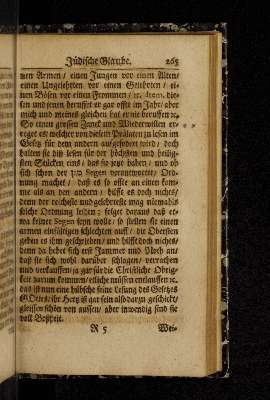 Jüdische Glaube. 265
nen Armen / einen Jungen vor einen Alten /
einen Ungelehrten vor einen Gelehrten / ei-
nen Bösen vor einen Frommen / ꝛc. Item, die-
sen und jenen berufft er gar offt im Jahr / aber
mich und meines gleichen hat er nie beruffen ꝛc.
So einen grossen Zanck und Wiederwillen er-
reget es / welcher von diesem Prälaten zu lesen im
Gesetz für dem andern auffgefordert wird / doch
halten sie diß lesen für der höchsten und heilig-
sten Stücken eins / das sie jetzt haben / und ob
sich schon der verantwortet / Ord-
nung machet / daß es so offte an einen kom-
me als an den andern / hilfft es doch nichts /
denn der reicheste und gelehrteste mag niemahls
solche Ordnung leiden: folget daraus daß et-
wa keiner Segen seyn wolle / so stellen sie einen
armen einfältigen schlechten auff / die Obersten
geben es ihm geschrieben / und hilfft doch nichts /
denn da hebet sich erst Jammer und Noth an /
daß sie sich wohl darüber schlagen / verrathen
und verkauffen / ja gar für die Christliche Obrig-
keit darum kommen / etliche müssen entlauffen ꝛc.
das ist nun eine hübsche feine Lesung des Gesetzes
GOttes / ihr Hertz ist gar fein also darzu geschickt /
gleissen schön von aussen / aber inwendig sind sie
voll Boßheit.
R 5 Wei-